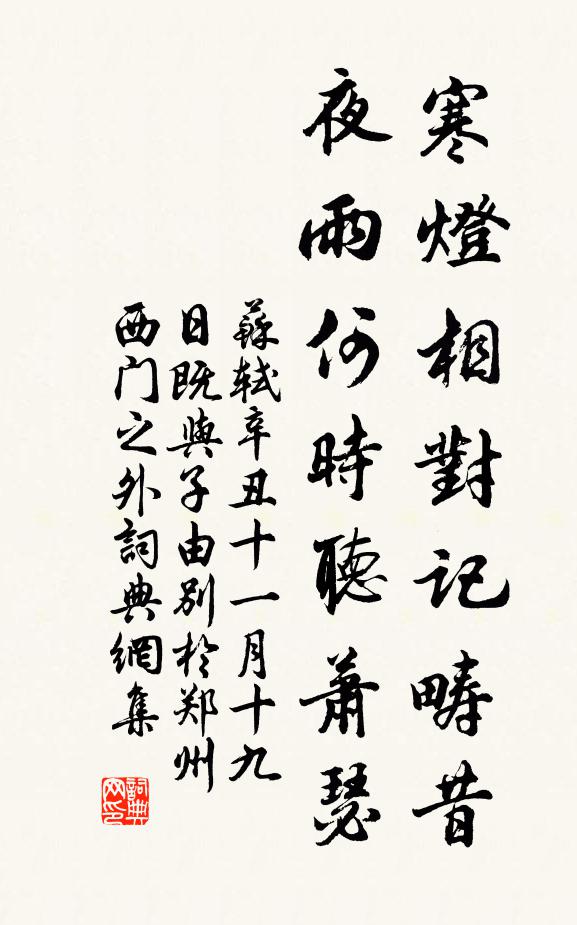 寒燈相對記疇昔
夜雨何時聽蕭瑟
蘇軾辛丑十一月十九
日既與子由別於郑州
西门之外詞典網集
詞典
网印